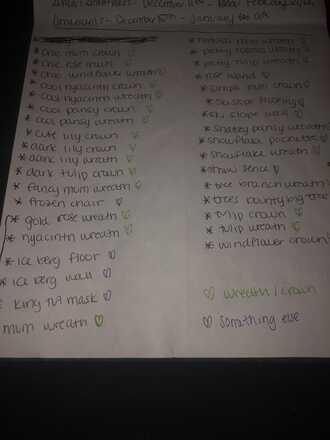 * chic mum crown ♡
* chic rose mum ♡
* chic windflower wreath ♡
* cool hyacinth crown ♡
* cool hyacinth wreath ♡
* cool pansy crown ♡
* cool pansy wreath ♡
* cute lily crown ♡
* dark lily crown ♡
* dark lily wreath ♡
* dark tulip crown ♡
* fancy mum wreath ♡
* frozen chair ♡
* gold rose wreath ♡
* hyacinth wreath ♡
* ice berg floor ♡
* ice berg wall ♡
* king tut mask ♡
mum wreath ♡
wreath ♡
* pretty cosmos wreath ♡
* pretty tulip wreath ♡
* rose wand ♡
* simple mum crown ♡
* ski slope wall ♡
* snappy pansy wreath
* snowflake ♡
* snowflake wreath ♡
* tree branch wreath
* trees bounty big tree
* tulip crown ♡
* tulip wreath ♡
* windflower crown ♡
♡ wreath / crown
♡ something else